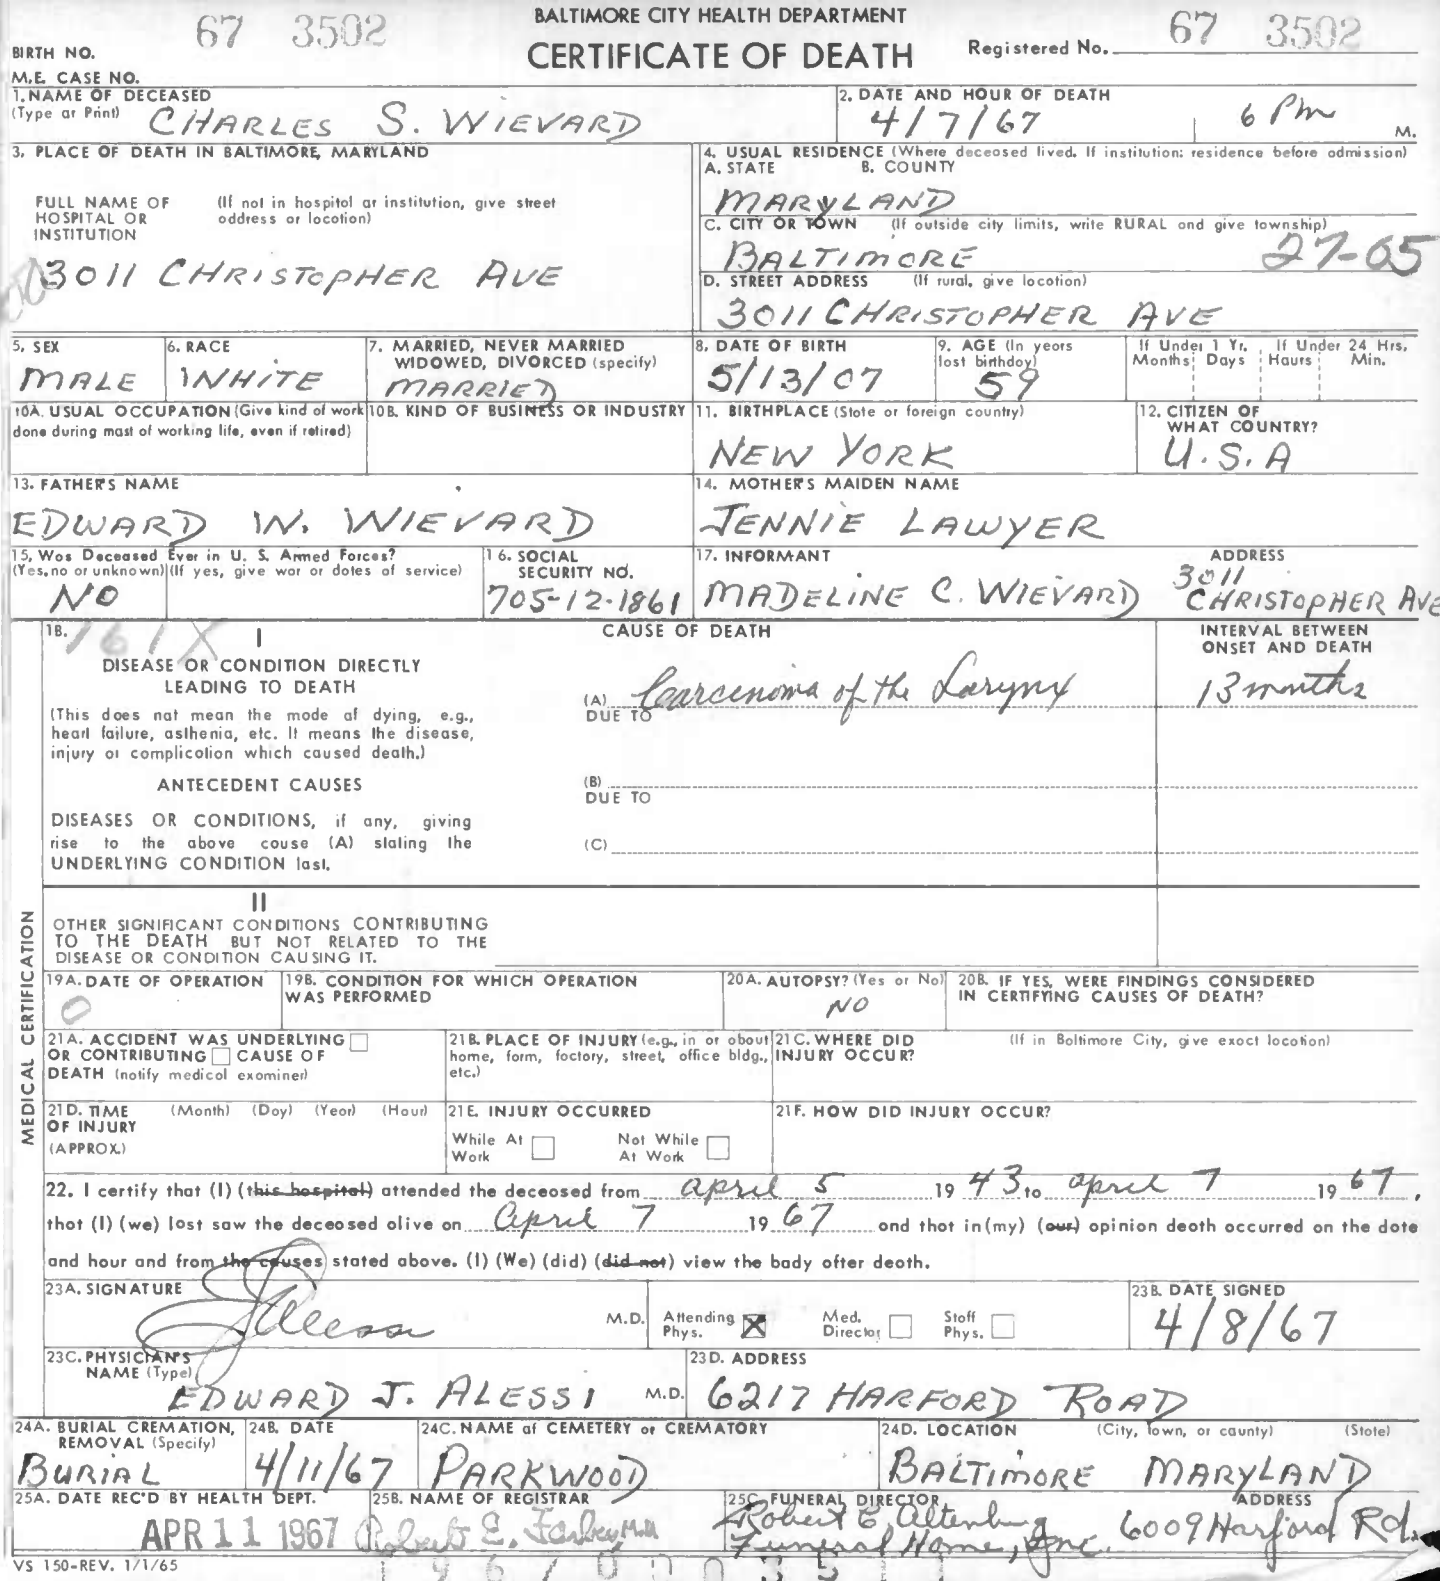 BALTIMORE CITY HEALTH DEPARTMENT
67 3502
CERTIFICATE OF DEATH
Registered No. 67 3502
BIRTH NO.
M.E. CASE NO.
1. NAME OF DECEASED
(Type or Print) CHARLES S. WIEVARD
2. DATE AND HOUR OF DEATH
4/7/67 6 Pm M.
3. PLACE OF DEATH IN BALTIMORE, MARYLAND
FULL NAME OF HOSPITAL OR INSTITUTION
(If not in hospital or institution, give street address or location)
3011 CHRISTOPHER AVE
4. USUAL RESIDENCE (Where deceased lived. If institution: residence before admission)
A. STATE B. COUNTY
MARYLAND
C. CITY OR TOWN (If outside city limits, write RURAL and give township)
BALTIMORE 27-05
D. STREET ADDRESS (If rural, give location)
3011 CHRISTOPHER AVE
5. SEX
MALE
6. RACE
WHITE
7. MARRIED, NEVER MARRIED
WIDOWED, DIVORCED (specify)
MARRIED
8. DATE OF BIRTH
5/13/07
9. AGE (In years
last birthday)
59
If Under 1 Yr. If Under 24 Hrs.
Months Days Hours Min.
10A. USUAL OCCUPATION (Give kind of work
done during most of working life, even if retired)
10B. KIND OF BUSINESS OR INDUSTRY
11. BIRTHPLACE (State or foreign country)
NEW YORK
12. CITIZEN OF
WHAT COUNTRY?
U.S.A
13. FATHER'S NAME
EDWARD W. WIEVARD
14. MOTHER'S MAIDEN NAME
JENNIE LAWYER
15. Was Deceased Ever in U. S. Armed Forces?
(Yes, no or unknown) (If yes, give war or dates of service)
NO
16. SOCIAL
SECURITY NO.
705-12-1861
17. INFORMANT ADDRESS
MADELINE C. WIEVARD 3011
CHRISTOPHER AVE
18. 161X
I
DISEASE OR CONDITION DIRECTLY
LEADING TO DEATH
(This does not mean the mode of dying, e.g.,
heart failure, asthenia, etc. It means the disease,
injury or complication which caused death.)
ANTECEDENT CAUSES
DISEASES OR CONDITIONS, if any, giving
rise to the above cause (A) stating the
UNDERLYING CONDITION last.
CAUSE OF DEATH
(A) Carcinoma of the Larynx
DUE TO
(B)
DUE TO
(C)
INTERVAL BETWEEN
ONSET AND DEATH
13 months
II
OTHER SIGNIFICANT CONDITIONS CONTRIBUTING
TO THE DEATH BUT NOT RELATED TO THE
DISEASE OR CONDITION CAUSING IT.
MEDICAL CERTIFICATION
19A. DATE OF OPERATION
0
19B. CONDITION FOR WHICH OPERATION
WAS PERFORMED
20A. AUTOPSY? (Yes or No)
NO
20B. IF YES, WERE FINDINGS CONSIDERED
IN CERTIFYING CAUSES OF DEATH?
21A. ACCIDENT WAS UNDERLYING
OR CONTRIBUTING CAUSE OF
DEATH (notify medical examiner)
21B. PLACE OF INJURY (e.g., in or about
home, farm, factory, street, office bldg.,
etc.)
21C. WHERE DID
INJURY OCCUR?
(If in Baltimore City, give exact location)
21D. TIME (Month) (Day) (Year) (Hour)
OF INJURY
(APPROX.)
21E. INJURY OCCURRED
While At
Work
Not While
At Work
21F. HOW DID INJURY OCCUR?
22. I certify that (I) (this hospital) attended the deceased from april 5 1943 to april 7 1967,
that (I) (we) last saw the deceased alive on april 7 1967 and that in (my) (our) opinion death occurred on the date
and hour and from the causes stated above. (I) (We) (did) (did not) view the body after death.
23A. SIGNATURE
M.D.
Attending
Phys.
Med.
Director
Staff
Phys.
23B. DATE SIGNED
4/8/67
23C. PHYSICIAN'S
NAME (Type)
EDWARD J. ALESSI M.D.
23D. ADDRESS
6217 HARFORD ROAD
24A. BURIAL CREMATION,
REMOVAL (Specify)
BURIAL
24B. DATE
4/11/67
24C. NAME of CEMETERY or CREMATORY
PARKWOOD
24D. LOCATION (City, town, or county) (State)
BALTIMORE MARYLAND
25A. DATE REC'D BY HEALTH DEPT.
APR 11 1967
25B. NAME OF REGISTRAR
Robert E. Farber, M.D.
25C. FUNERAL DIRECTOR ADDRESS
Robert E. Altenburg
Funeral Home, Inc. 6009 Harford Rd.
VS 150-REV. 1/1/65